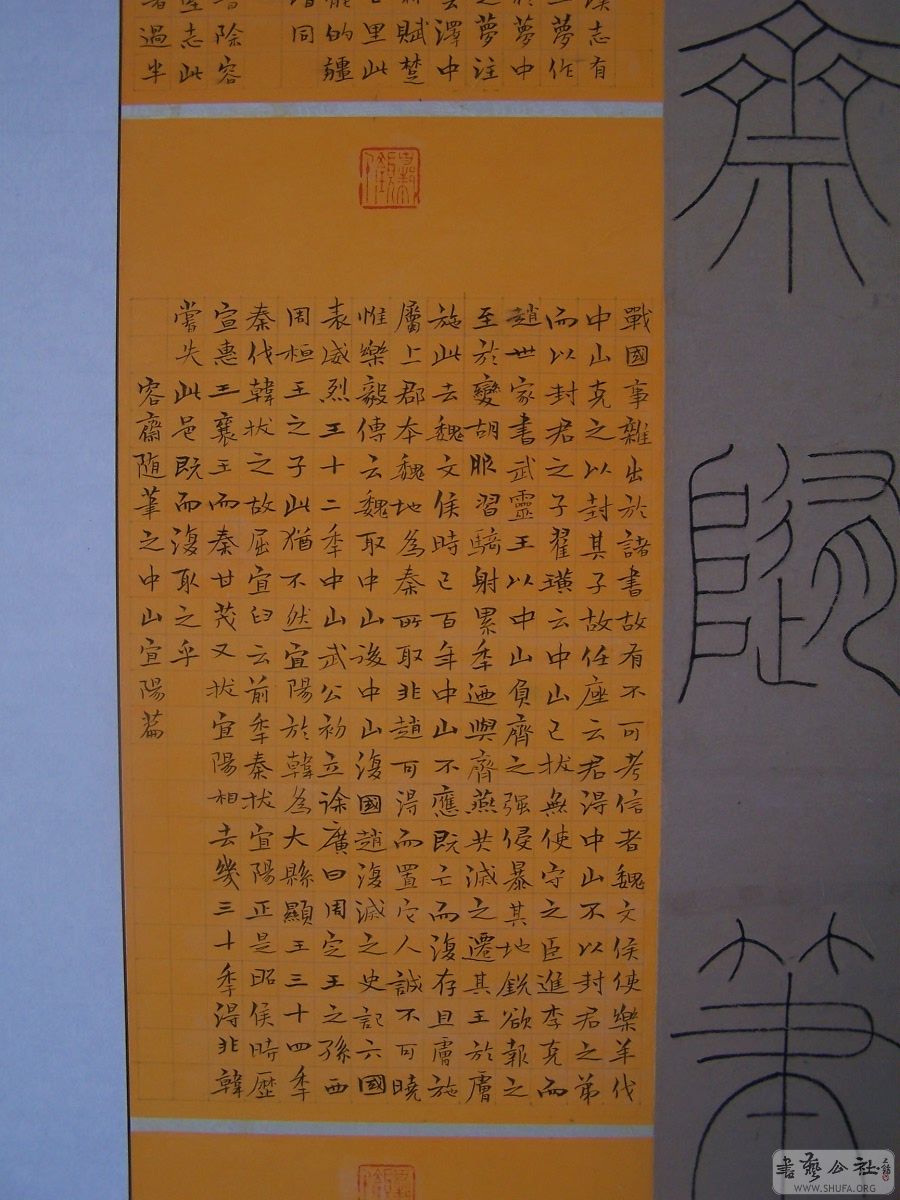 齋隨筆
志有
夢作
夢中
夢注
澤中
賦楚
里此
的疆
同
除容
志此
過半
戰國事雜出於諸書故有不可考信者魏文侯使樂羊伐
中山克之以封其子故任座云君得中山不以封君之弟
而以封君之子翟璜云中山已拔無使守之臣進李克而
趙世家書武靈王以中山負齊之強侵暴其地銳欲報之
至於變胡服習騎射累秊迺與齊燕共滅之遷其王於膚
施此去魏文侯時已百年中山不應既亡而復存且膚施
屬上郡本魏地為秦所取非趙可得而置它人誠不可曉
惟樂毅傳云魏取中山後中山復國趙復滅之史記六國
表威烈王十二秊中山武公初立徐廣曰周定王之孫西
周桓王之子此猶不然宜陽於韓為大縣顯王三十四秊
秦伐韓拔之故屈宜臼云前秊秦拔宜陽正是昭侯時歷
宣惠王襄王而秦甘茂又拔宜陽相去幾三十秊得非韓
嘗失此邑既而復取之乎
容齋随筆之中山宜陽篇
書藝公社
WWW.SHUFA.ORG